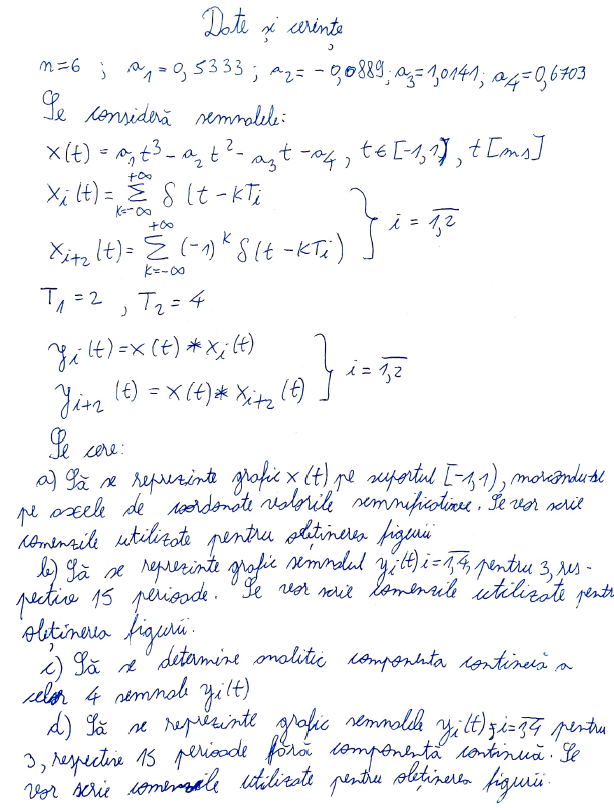 Date și cerințe
n=6 ; a₁=0,5333 ; a₂= -0,0889; a₃=1,0141; a₄=0,6703
Se consideră semnalele:
x(t) = a₁t³ - a₂t² - a₃t - a₄ , t∈[-1,1) , t[ms]
xᵢ(t) = Σ_{k=-∞}^{+∞} δ(t-kTᵢ
xᵢ₊₂(t) = Σ_{k=-∞}^{+∞} (-1)ᵏ δ(t-kTᵢ) } i = \overline{1,2}
T₁=2 , T₂=4
yᵢ(t)=x(t)*xᵢ(t)
yᵢ₊₂(t) = x(t)*xᵢ₊₂(t) } i = \overline{1,2}
Se cere:
a) Să se reprezinte grafic x(t) pe suportul [-1,1), marcându-se
pe axele de coordonate valorile semnificative. Se vor scrie
comenzile utilizate pentru obținerea figurii
b) Să se reprezinte grafic semnalul yᵢ(t) i=\overline{1,4}, pentru 3, res-
pectiv 15 perioade. Se vor scrie comenzile utilizate pentru
obținerea figurii.
c) Să se determine analitic componenta continuă a
celor 4 semnale yᵢ(t)
d) Să se reprezinte grafic semnalele yᵢ(t); i=\overline{1,4} pentru
3, respectiv 15 perioade fără componentă continuă. Se
vor scrie comenzile utilizate pentru obținerea figurii.